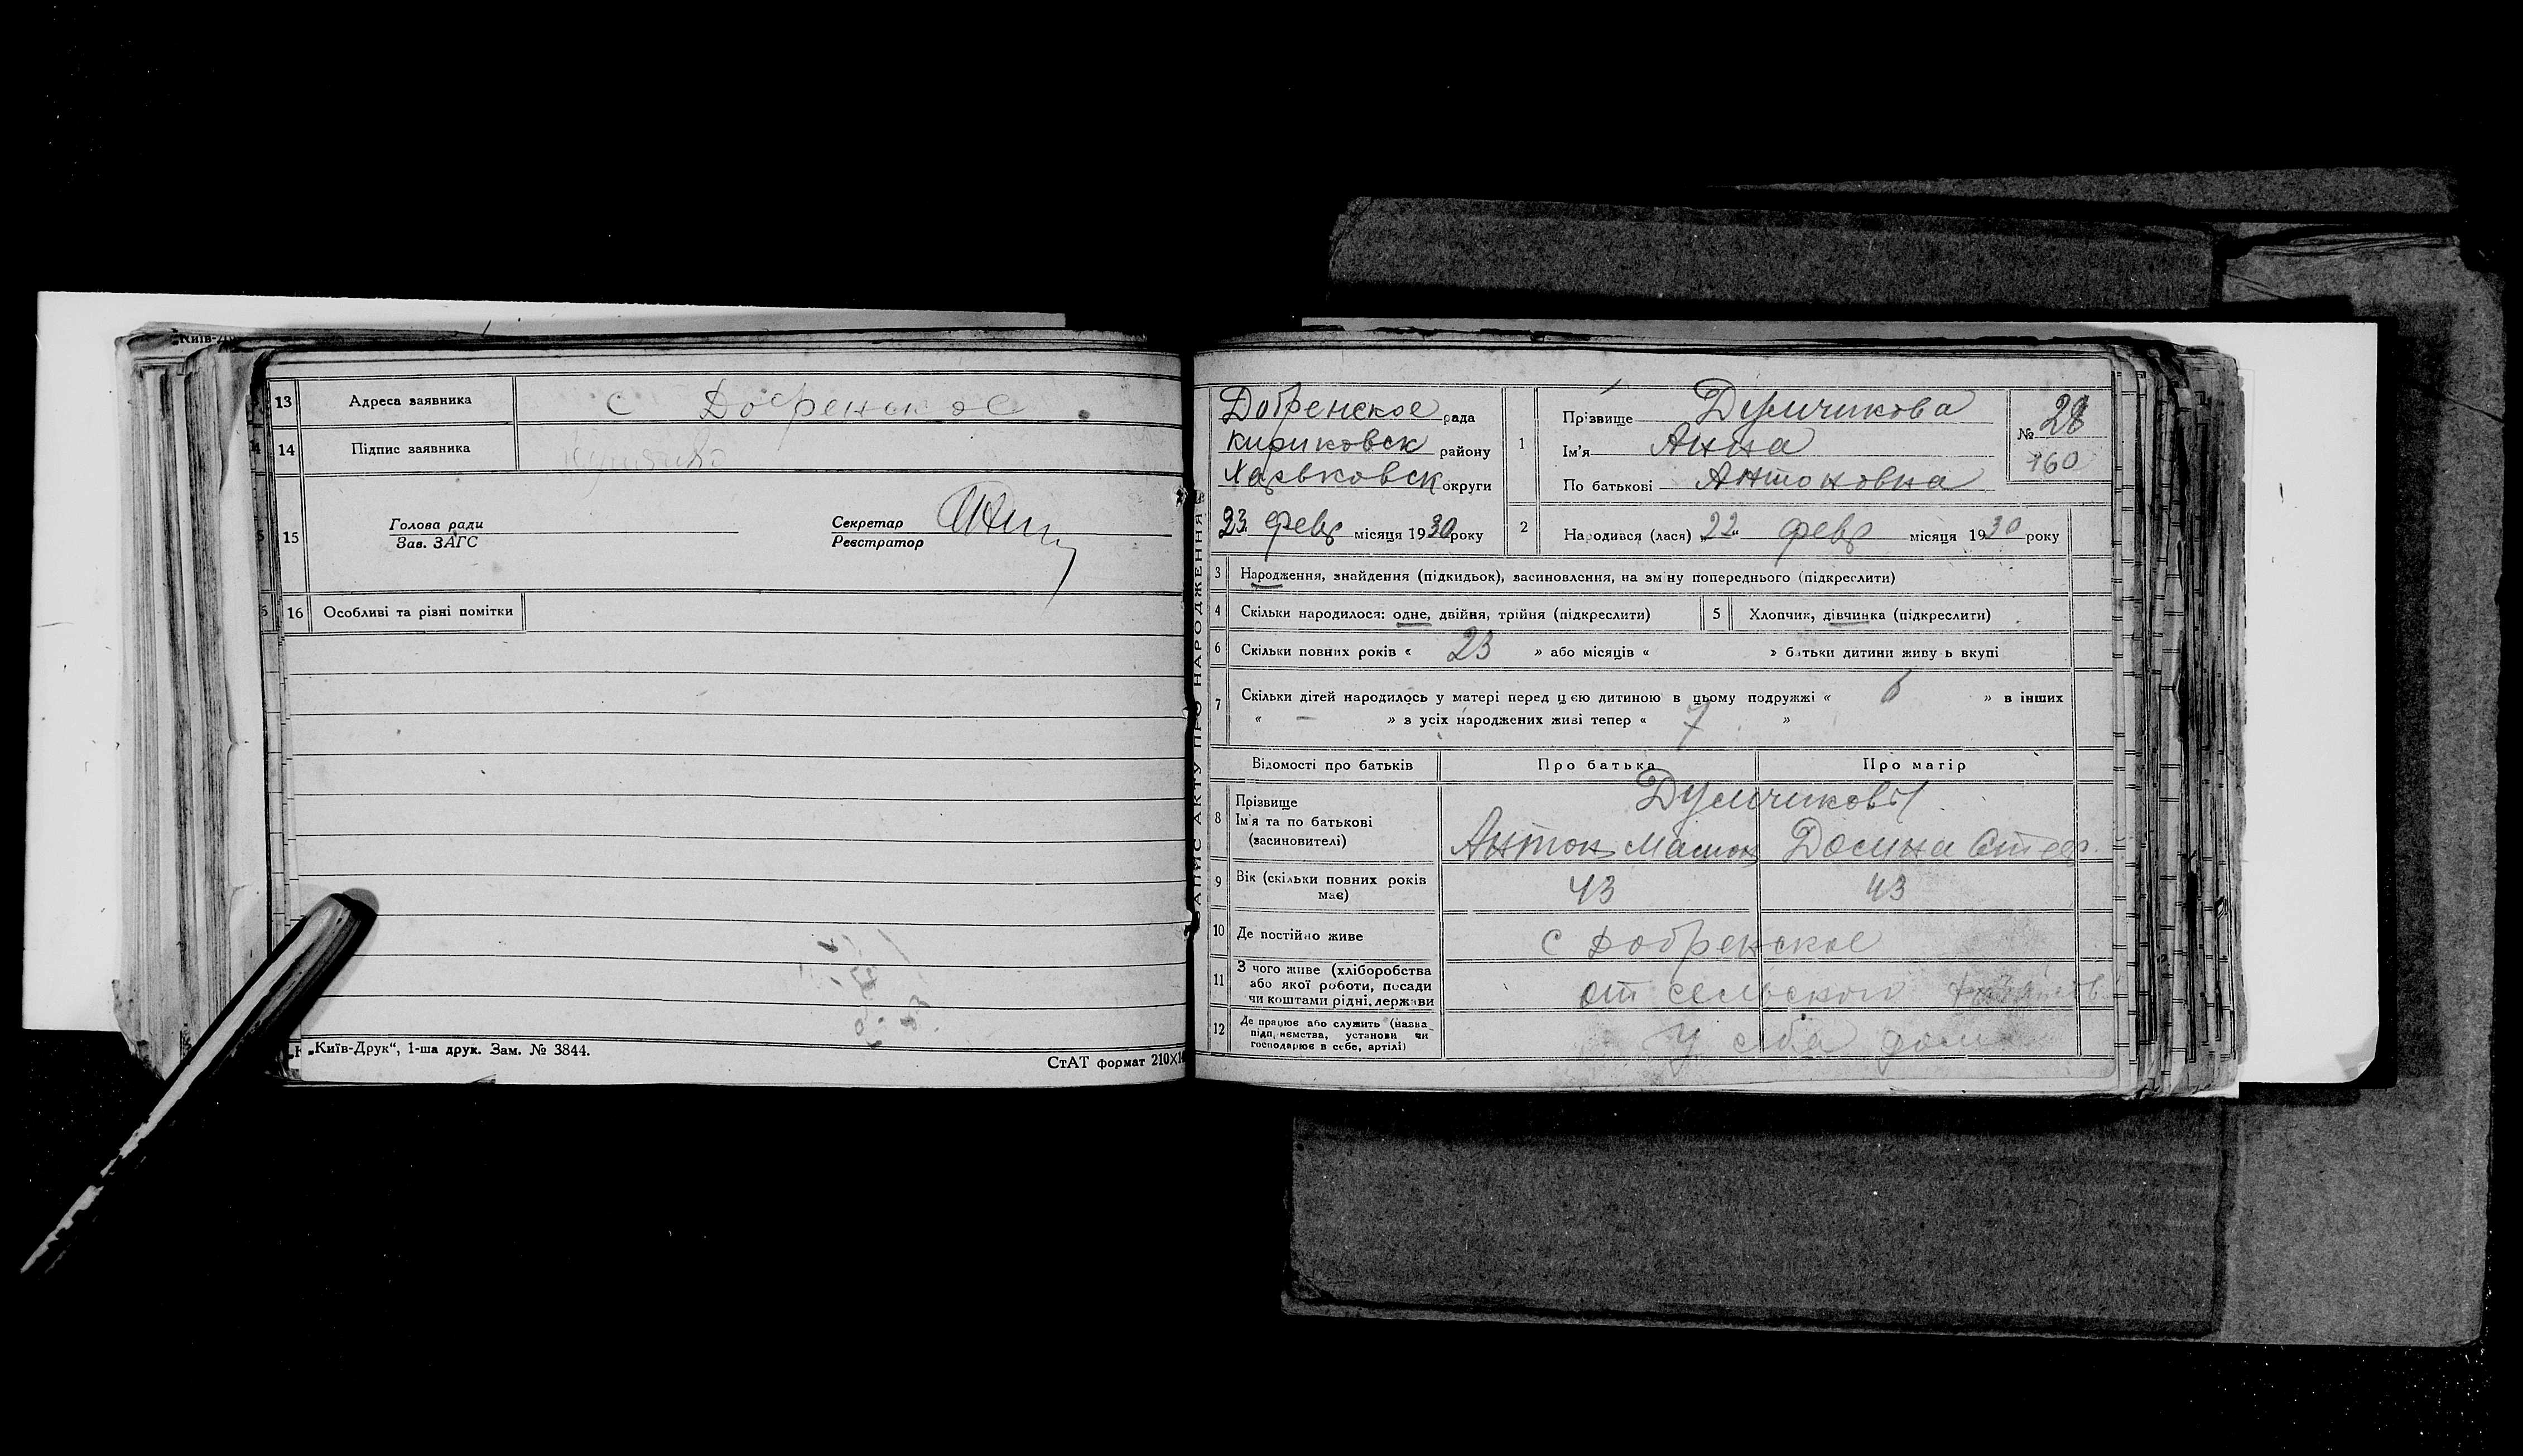 13 Адреса заявника с Добренское
14 Підпис заявника
15 Голова ради
Зав. ЗАГС
Секретар
Реєстратор
16 Особливі та різні помітки
„Київ-Друк“, 1-ша друк. Зам. № 3844.
СтАТ формат 210×
ЗАПИС АКТУ ПРО НАРОДЖЕННЯ
Добренское рада
Кириковск району
Харьковск округи
23 февр місяця 1930 року
1 Прізвище Думчикова
Ім'я Анна
По батькові Антоновна
№ 28
160
2 Народився (лася) „22“ февр місяця 1930 року
3 Народження, знайдення (підкидьок), засиновлення, на зміну попереднього (підкреслити)
4 Скільки народилося: одне, двійня, трійня (підкреслити)
5 Хлопчик, дівчинка (підкреслити)
6 Скільки повних років « 23 » або місяців « » батьки дитини живуть вкупі
7 Скільки дітей народилось у матері перед цією дитиною в цьому подружжі « 6 » в інших
« — » з усіх народжених живі тепер « 7 »
Відомості про батьків Про батька Про матір
8 Прізвище
Ім'я та по батькові
(засиновителі)
Думчиковы
Антон Домна Стеф.
9 Вік (скільки повних років має) 43 43
10 Де постійно живе с Добренское
11 З чого живе (хліборобства
або якої роботи, посади
чи коштами рідні, держави
от сельского
12 Де працює або служить (назва
підприємства, установи чи
господарює в себе, артілі)
у себя дома